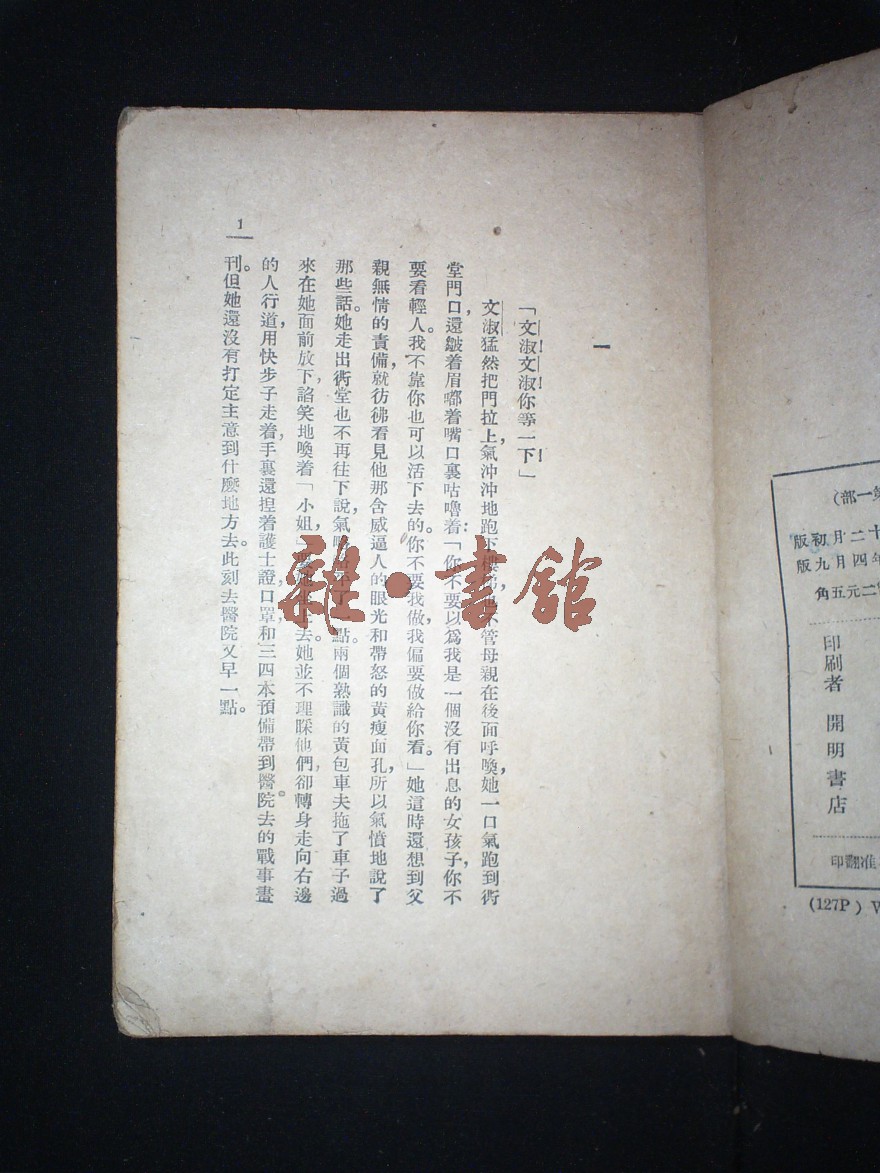 一
「文淑！文淑！你等一下！」
文淑猛然把門拉上，氣沖沖地跑下樓
不管母親在後面呼喚她，一口氣跑到衖
堂門口，還皺着眉嘟着嘴口裏咕嚕着：「你不要以爲我是一個沒有出息的女孩子，你不
要看輕人。我不靠你也可以活下去的。你不要我做，我偏要做給你看。」她這時還想到父
親無情的責備，就彷彿看見他那含威逼人的眼光和帶怒的黃瘦面孔，所以氣憤地說了
那些話。她走出衖堂也不再往下說，氣
點。兩個熟識的黃包車夫拖了車子過
來在她面前放下，諂笑地喚着「小姐，」
去。她並不理睬他們，卻轉身走向右邊
的人行道，用快步子走着，手裏還捏着護士證，口罩和三四本預備帶到醫院去的戰事畫
刊。但她還沒有打定主意到什麼地方去。此刻去醫院又早一點。
1
雜·書館
第一部）
十二月初版
年四月九版
二元五角
印刷者 開明書店
准翻印
(127P) W